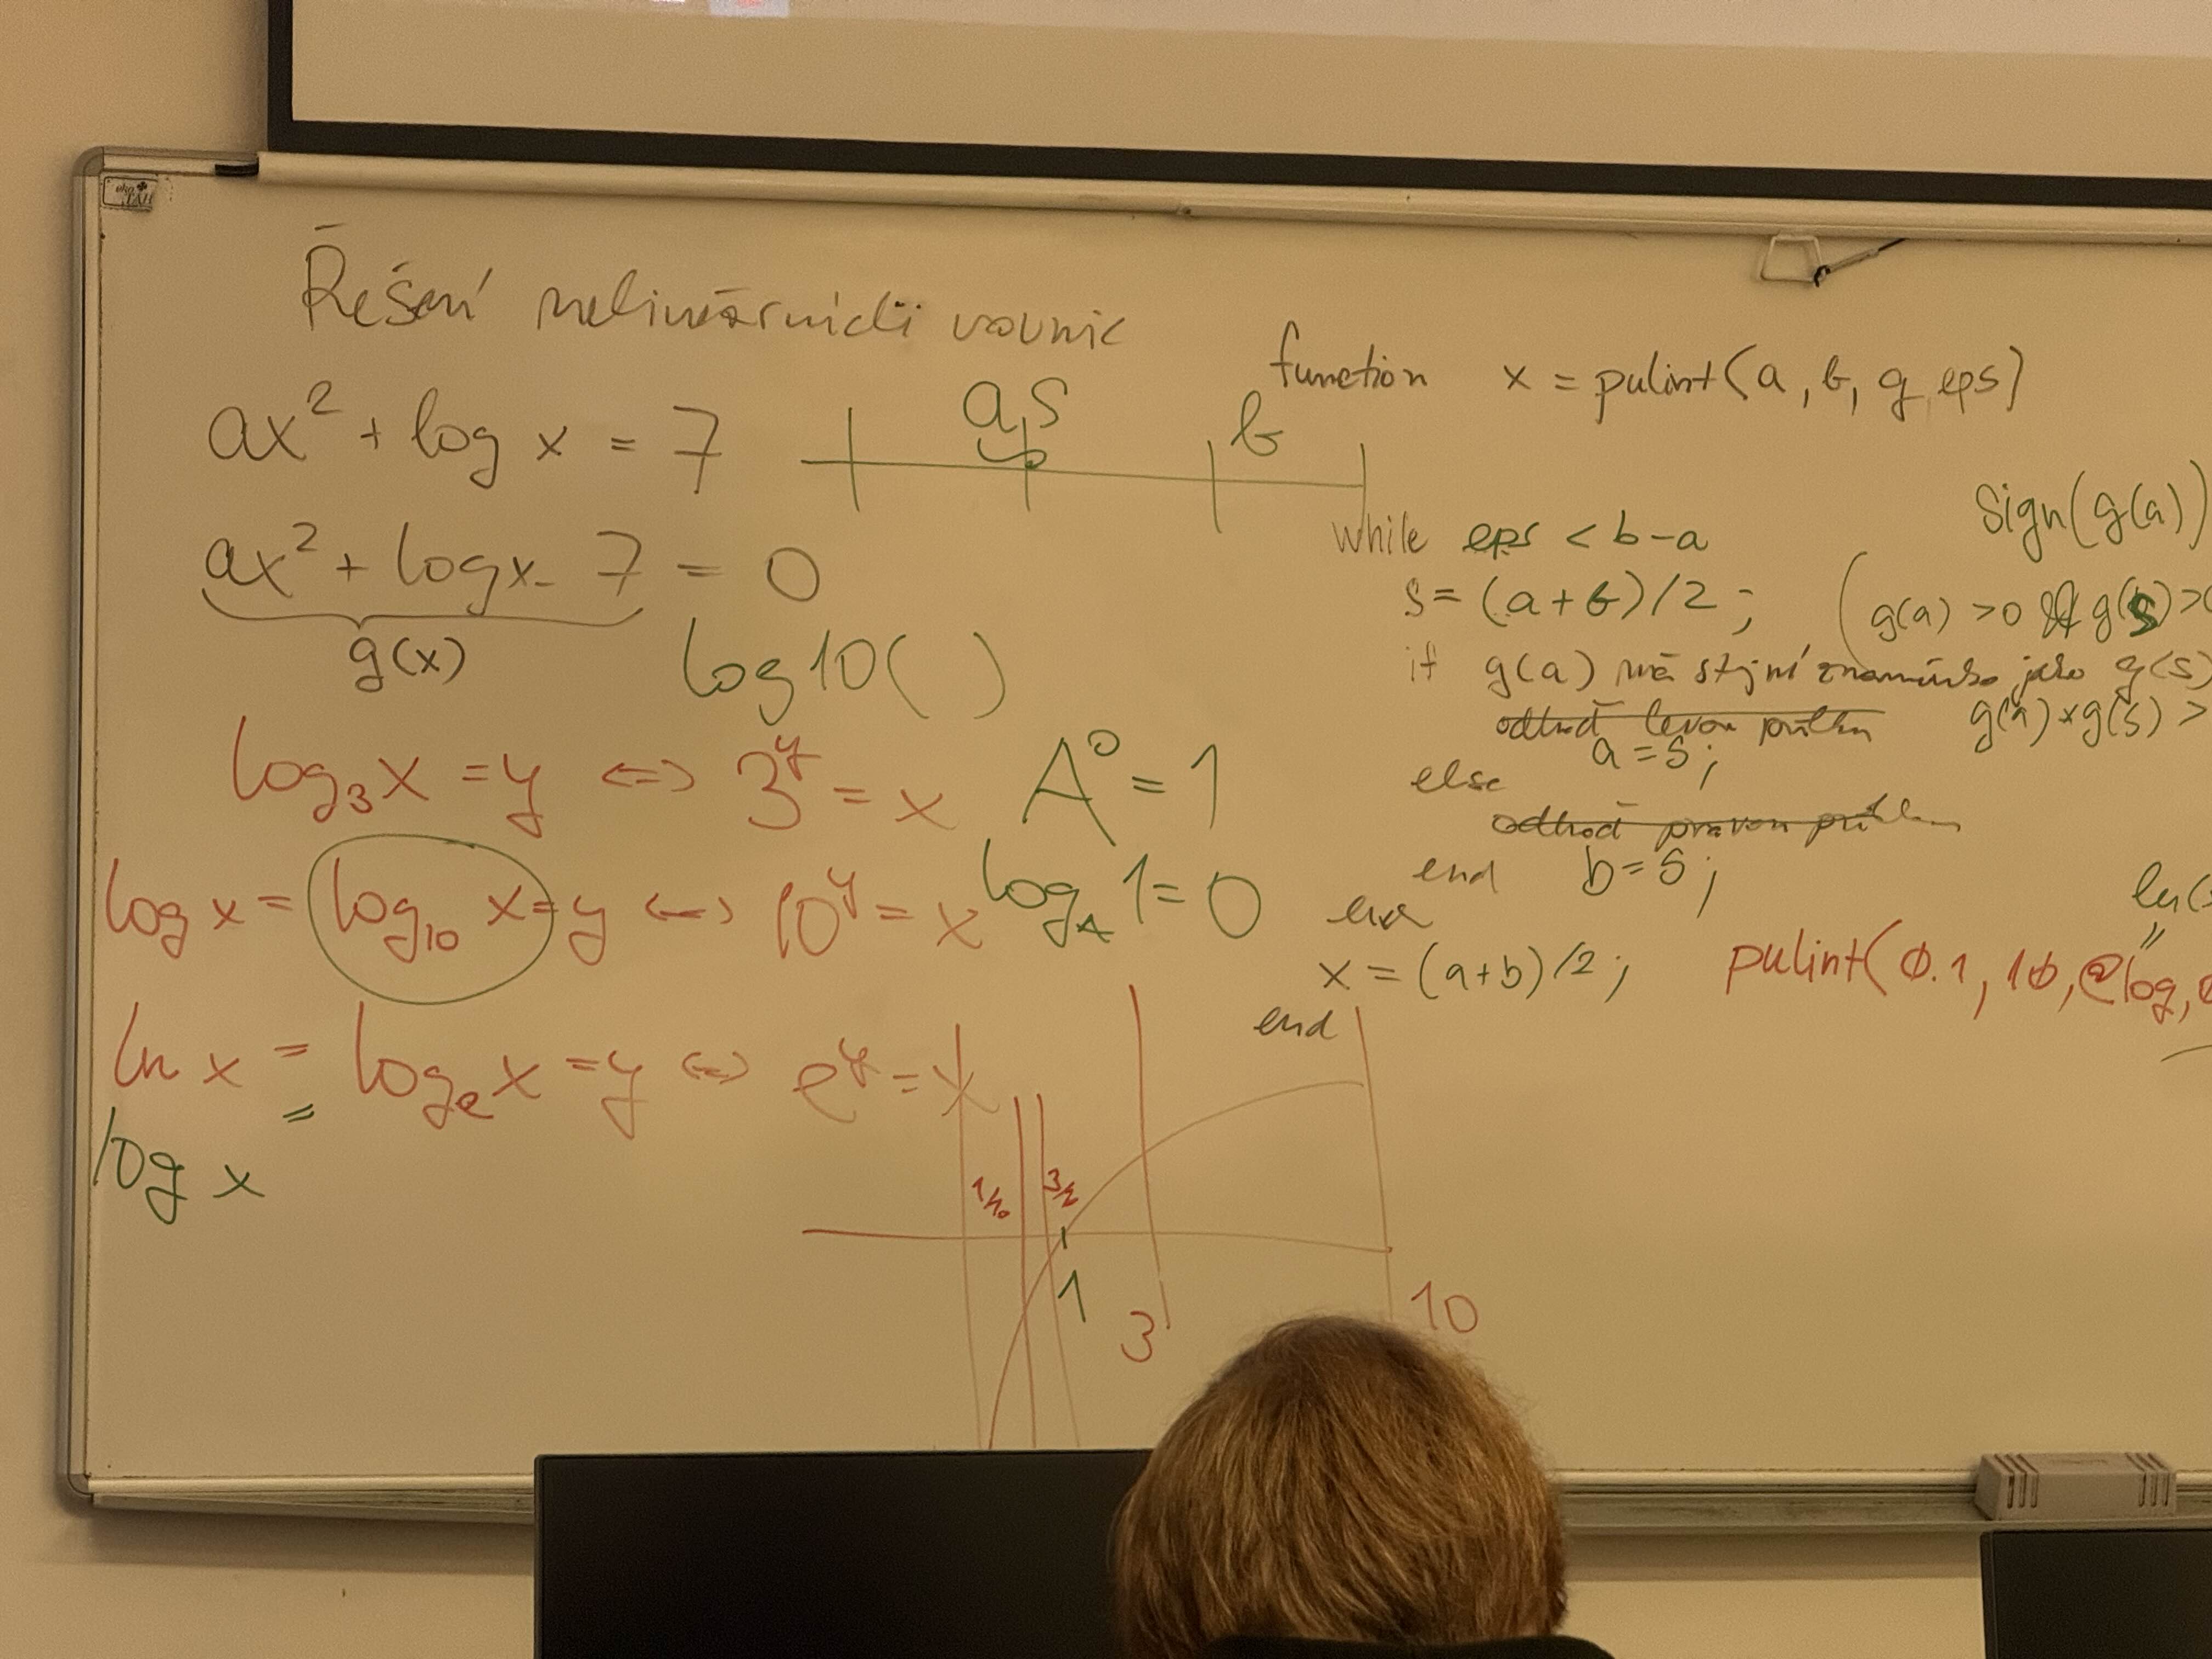 Řešení nelineárních rovnic
ax² + log x = 7
ax² + log x - 7 = 0
g(x)
log10( )
log₃x = y ⇔ 3^y = x
A⁰ = 1
log x = log₁₀ x = y ⇔ 10^y = x
log_A 1 = 0
ln x = log_e x = y ⇔ e^y = x
=
log x
a s b
1/10 3/2
1 3 10
function x = pulint(a, b, g, eps)
while eps < b-a
s = (a+b)/2;
if g(a) má stejné znaménko jako g(s)
odhoď levou půlku
a = s;
else
odhoď pravou půlku
end b = s;
end
x = (a+b)/2;
end
sign(g(a))
(g(a) >0 && g(s) >0
g(a)*g(s) >
ln(
=
pulint(0.1, 10, @log,